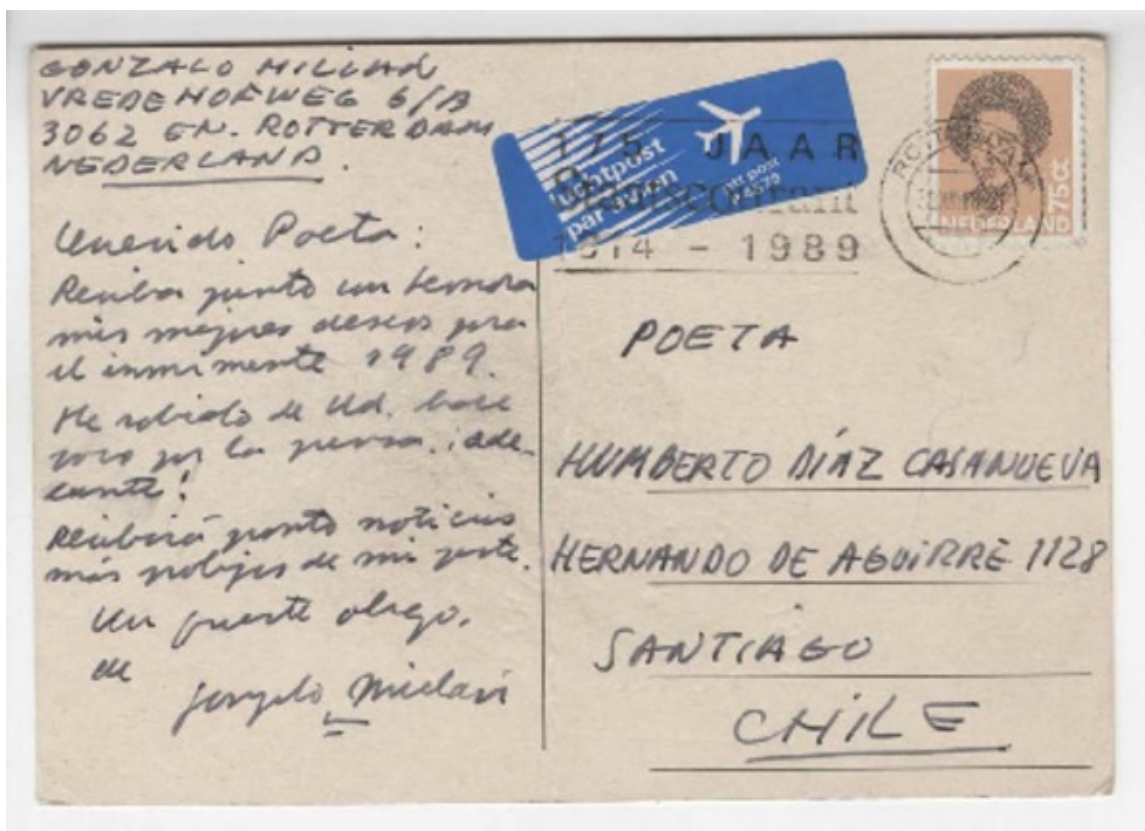 GONZALO MILLAN
VREDEHOFWEG 6/B
3062 EN. ROTTERDAM
NEDERLAND.
Querido Poeta:
Reciba junto con
mis mejores deseos para
el inminente 1989.
He sabido de Ud. hace
poco por la prensa.
Recibirá pronto noticias
más prolijas de mi parte.
Un fuerte abrazo,
de
Gonzalo Millán
luchtpost
par avion
ptt post
P 4579
175 JAAR
Staatscourant
1814 - 1989
NEDERLAND 75ct
POETA
HUMBERTO DÍAZ CASANUEVA
HERNANDO DE AGUIRRE 1128
SANTIAGO
CHILE